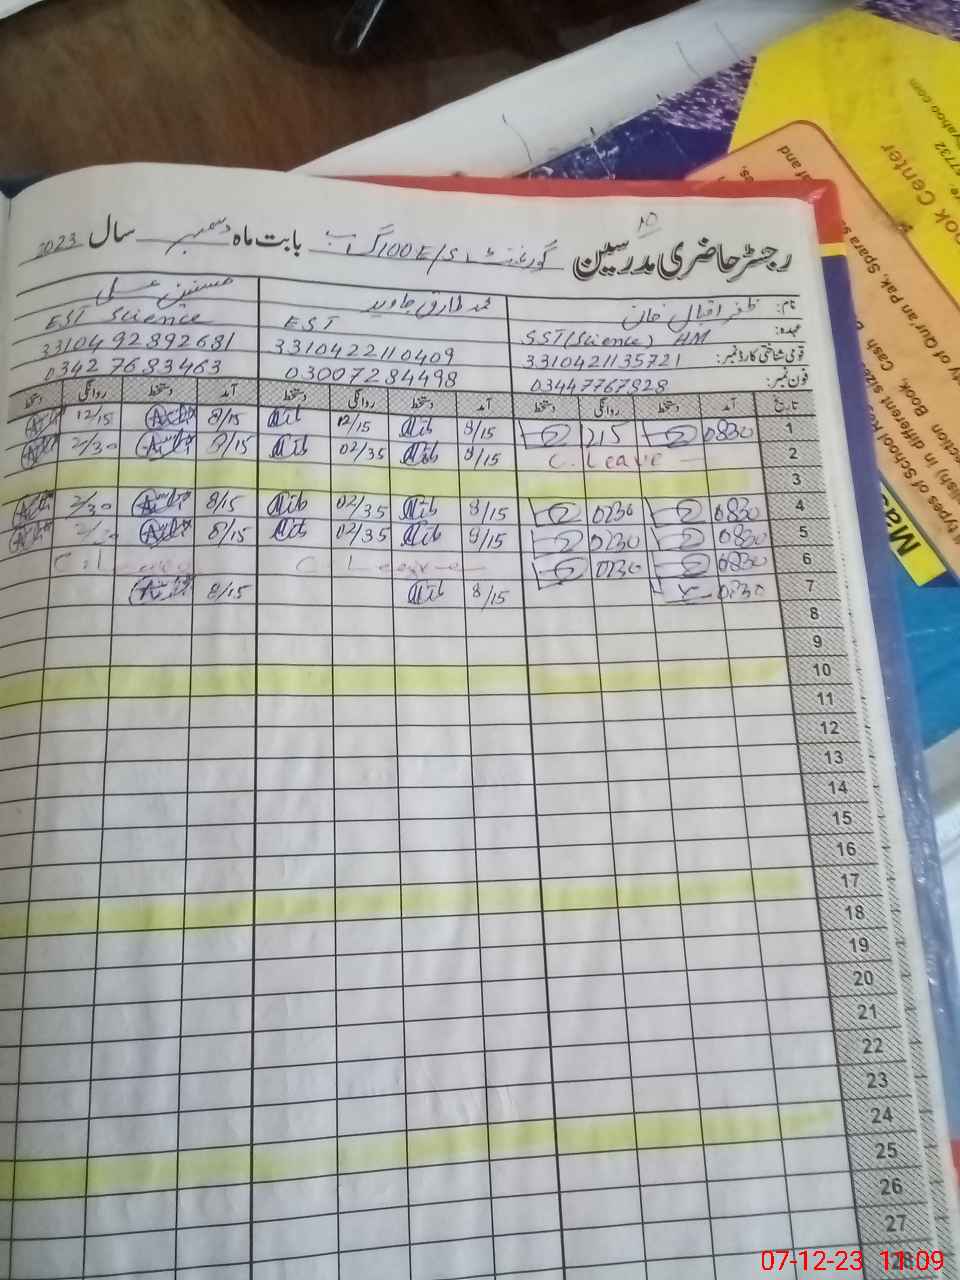 10
رجسٹر حاضری مدرسین گورنمنٹ 100 E/S گ ب بابت ماہ دسمبر سال 2023
نام: ظفر اقبال خان محمد طارق جاوید حسنین علی
عہدہ: SST(Science) HM EST EST Science
قومی شناختی کارڈ نمبر: 3310421135721 3310422110409 3310492892681
فون نمبر: 03447767828 03007284498 0342 7683463
تاریخ آمد دستخط روانگی دستخط آمد دستخط روانگی دستخط آمد دستخط روانگی دستخط
1 0830 215 8/15 12/15 8/15 12/15
2 C. Leave 8/15 02/35 8/15 2/30
3
4 0830 0230 8/15 02/35 8/15 2/30
5 0830 0230 8/15 02/35 8/15
6 0830 0230 C. Leave C. Leave
7 0830 8/15 8/15
8
9
10
11
12
13
14
15
16
17
18
19
20
21
22
23
24
25
26
27
28
07-12-23 11:09
ook Center
yahoo.com
7732
y of Qur'an Pak, Spara
Book, Cash
types of School
lish) in different size
Ma